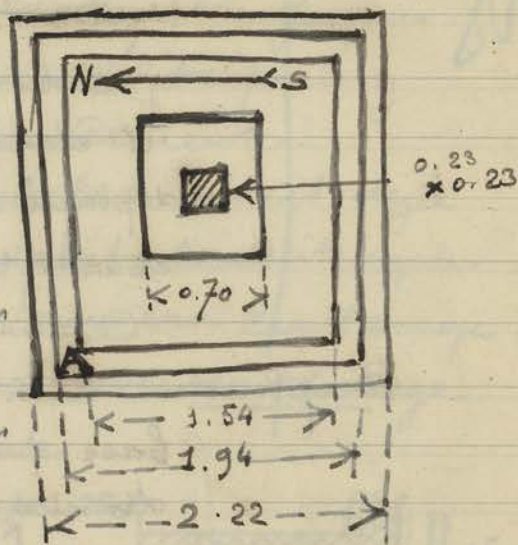 N S
0.23
x 0.23
0.70
A
1.54
1.94
2.22